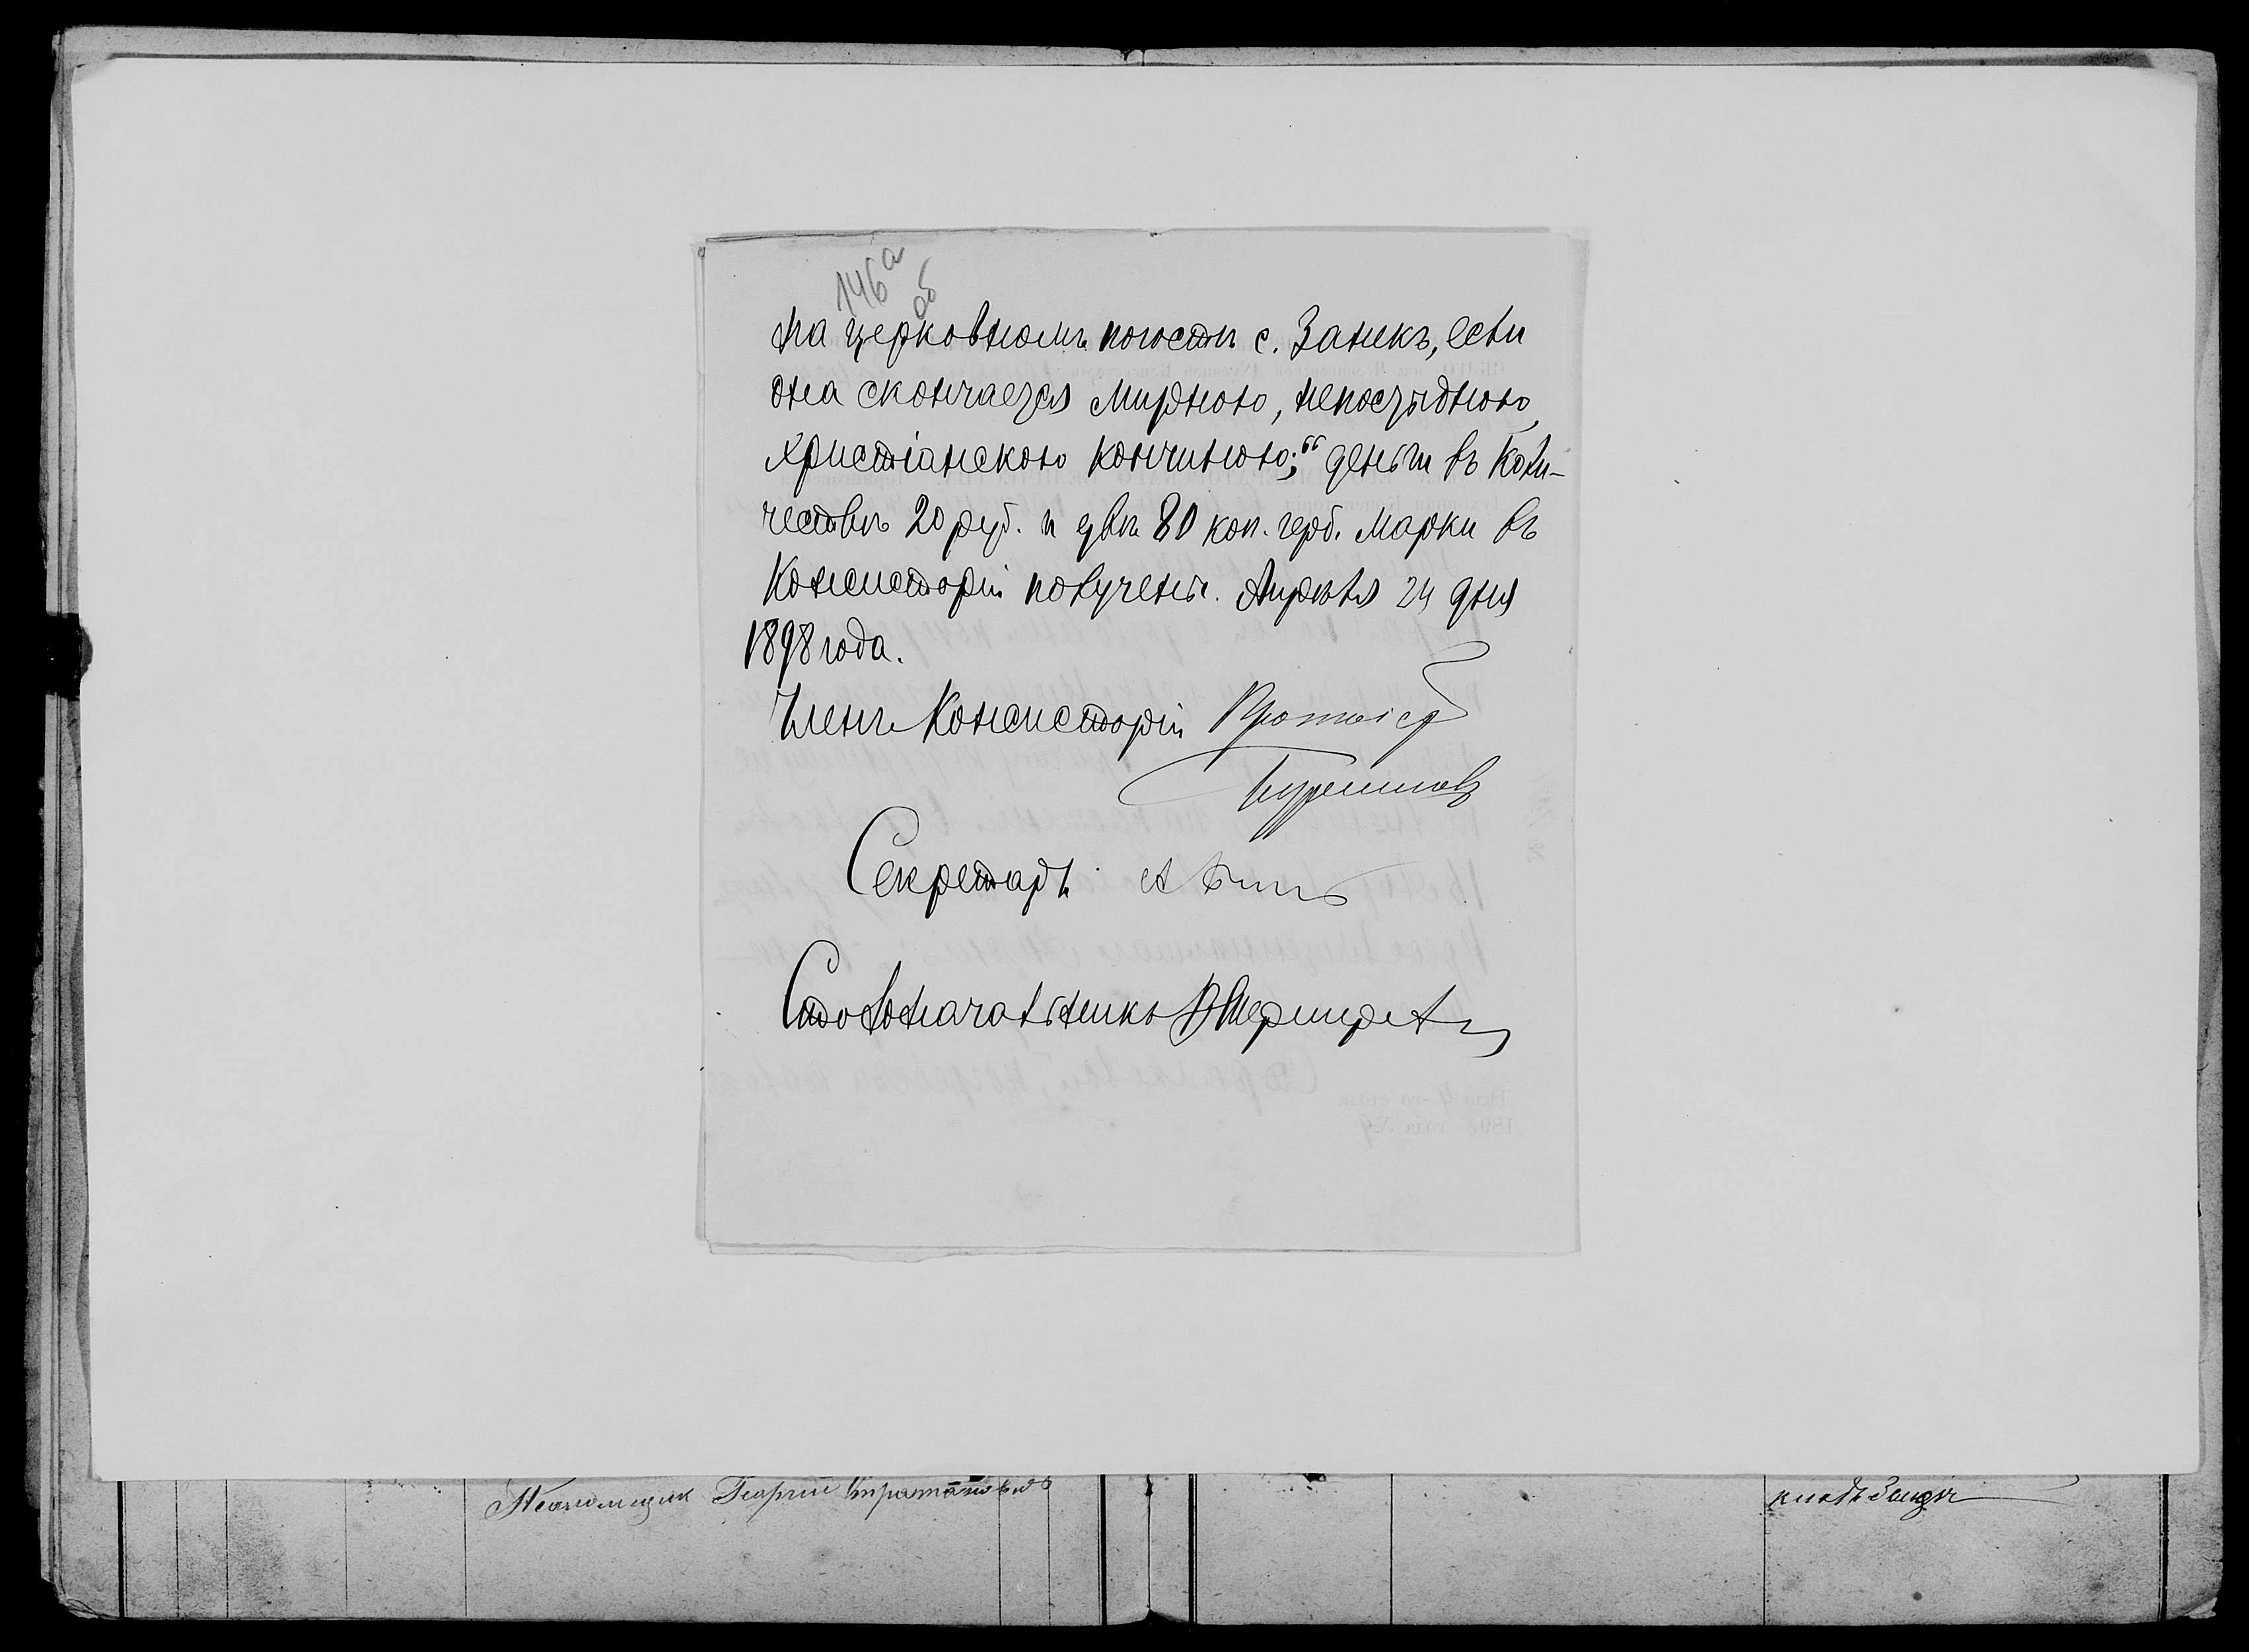 146а
об
на церковномъ погостѣ с. Заньки, если
она скончается мирною, непостыдною,
христіанскою кончиною;“ деньги въ коли-
чествѣ 20 руб. и двѣ 80 коп. герб. марки въ
Консисторіи получены. Апрѣля 24 дня
1898 года.
Членъ Консисторіи Протоіер
Секретарь
Столоначальникъ
Псаломщик Георгий